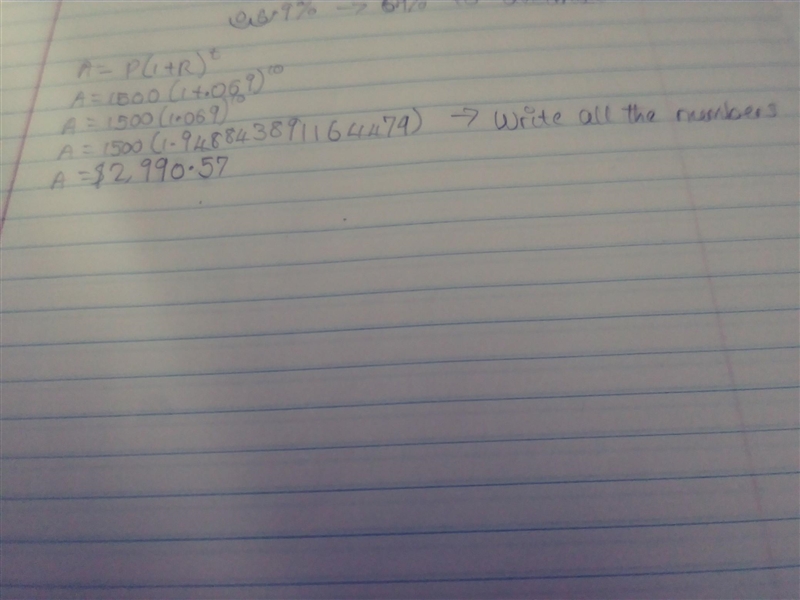 A = P(1+R)^t
A = 1500 (1+.069)^10
A = 1500 (1.069)^10
A = 1500 (1.948843891164479) → Write all the numbers
A = $2,990.57